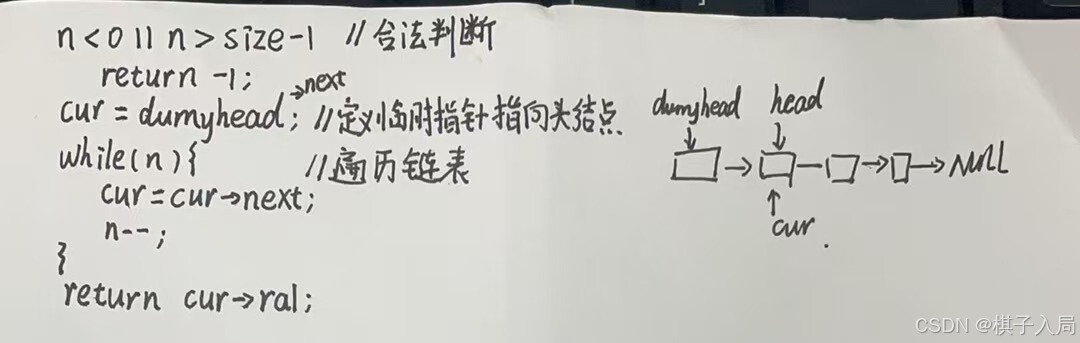 n<0 || n>size-1 //合法判断
return -1;
cur = dumyhead->next; //定义临时指针指向头结点
while(n){ //遍历链表
cur=cur->next;
n--;
}
return cur->ral;
dumyhead head
NULL
cur.
CSDN @棋子入局